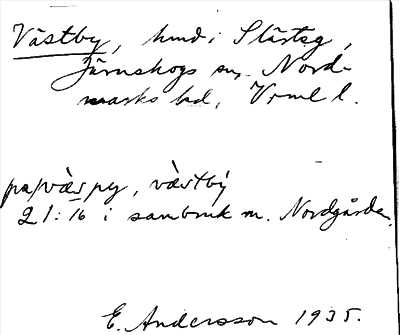 Västby, hmd i Slärteg,
Järnskogs sn, Nord-
marks hd, Vrml l.
pa/væ̀spy, væ̀stbý
21:16 i sambruk m. Nordgården.
E. Andersson 1935.